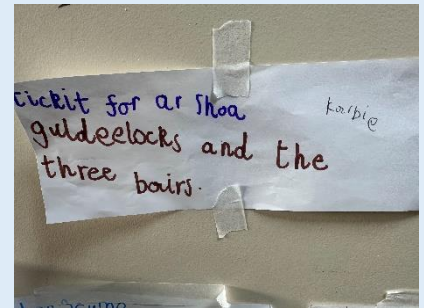 tickit for ar Shoa
guldeelocks and the
three bairs.